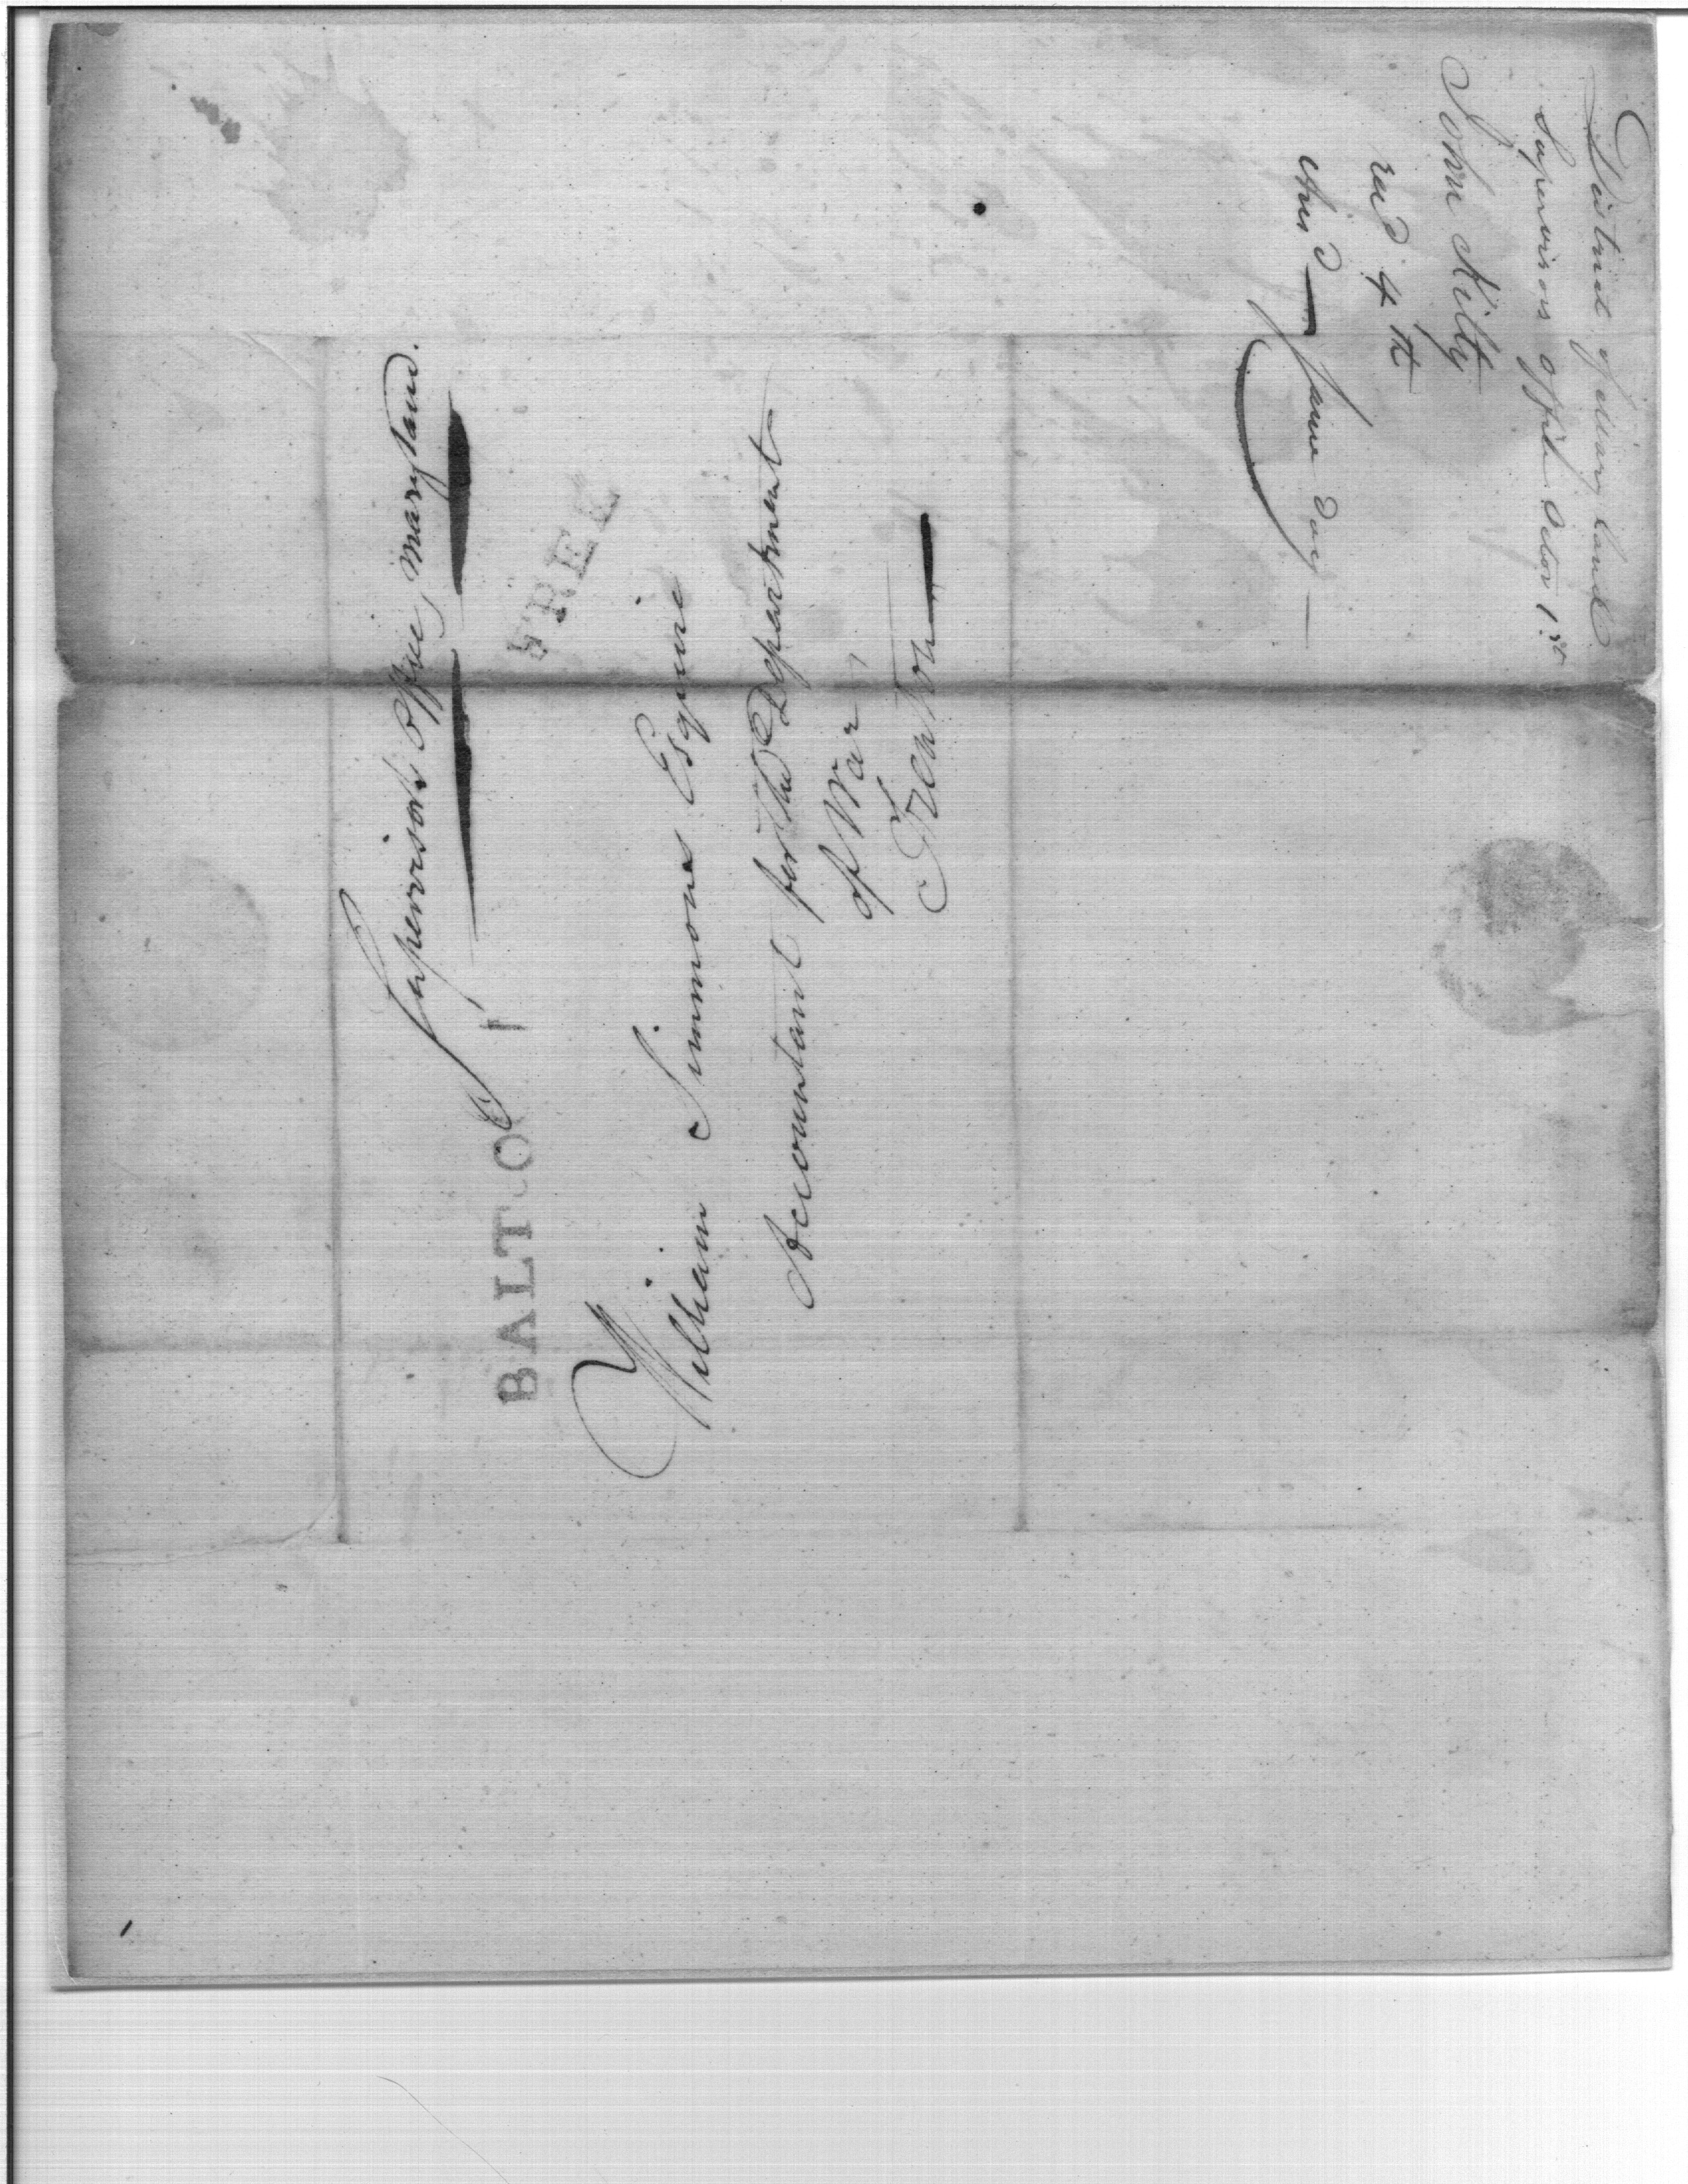 Supervisor's Office, Maryland.
BALTO
FREE
William Simmons Esquire
Accountant for the Department
of War,
Trenton
District of Maryland
Supervisors office Octor 1st
John Kilty
recd 4th
ansd same day